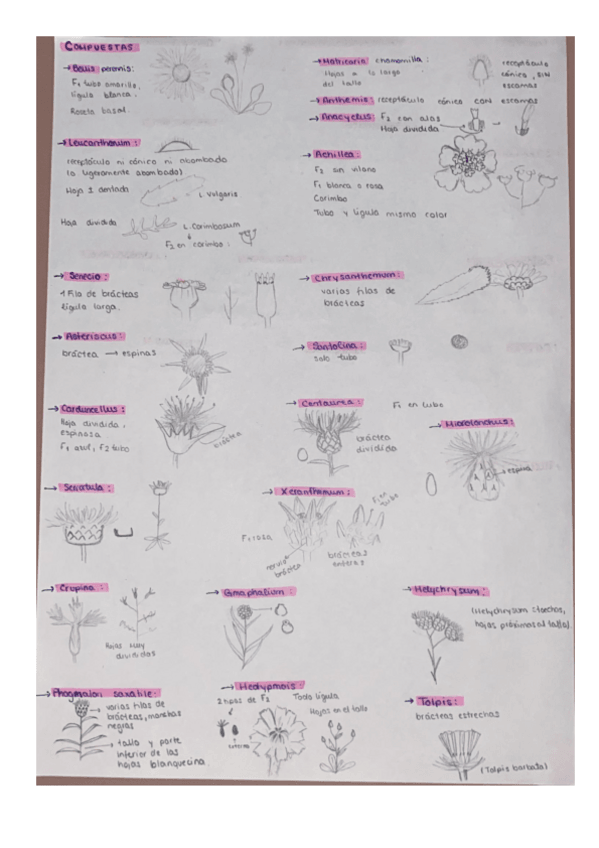 COMPUESTAS
→ Bellis perennis:
F1 tubo amarillo,
lígula blanca.
Roseta basal.
→ Matricaria chamomilla:
Hojas a lo largo
del tallo
receptáculo
cónico, SIN
escamas
→ Anthemis: receptáculo cónico con escamas
→ Anacyclus: F2 con alas
Hoja dividida
→ Leucanthemum:
receptáculo ni cónico ni abombado
(o ligeramente abombado)
Hoja 1 dentada
L. Vulgaris
Hoja dividida
L. Corimbosum
F2 en corimbo:
→ Achillea:
F2 sin vilano
F1 blanca o rosa
Corimbo
Tubo y lígula mismo color
→ Senecio:
1 fila de brácteas
lígula larga.
→ Chrysanthemum:
varias filas de
brácteas
→ Asteriscus:
bráctea → espinas
→ Santolina:
solo tubo
→ Carduncellus:
Hoja dividida,
espinosa
F1 azul, F2 tubo
bráctea
→ Centaurea:
F1 en tubo
bráctea
dividida
→ Galactites
espina
→ Serratula:
→ Xeranthemum:
F1 en
tubo
F1 rosa
nervio
bráctea
brácteas
enteras
→ Crupina:
Hojas muy
divididas
→ Gnaphalium:
→ Helychrysum:
(Helychrysum stoechas,
hojas próximas al tallo).
→ Phagnalon saxatile:
→ varias filas de
brácteas, manchas
negras
→ tallo y parte
inferior de las
hojas blanquecina
→ Hedypnois:
2 tipos de F2
Toda lígula
Hojas en el tallo
externo
→ Tolpis:
brácteas estrechas
(Tolpis barbata)